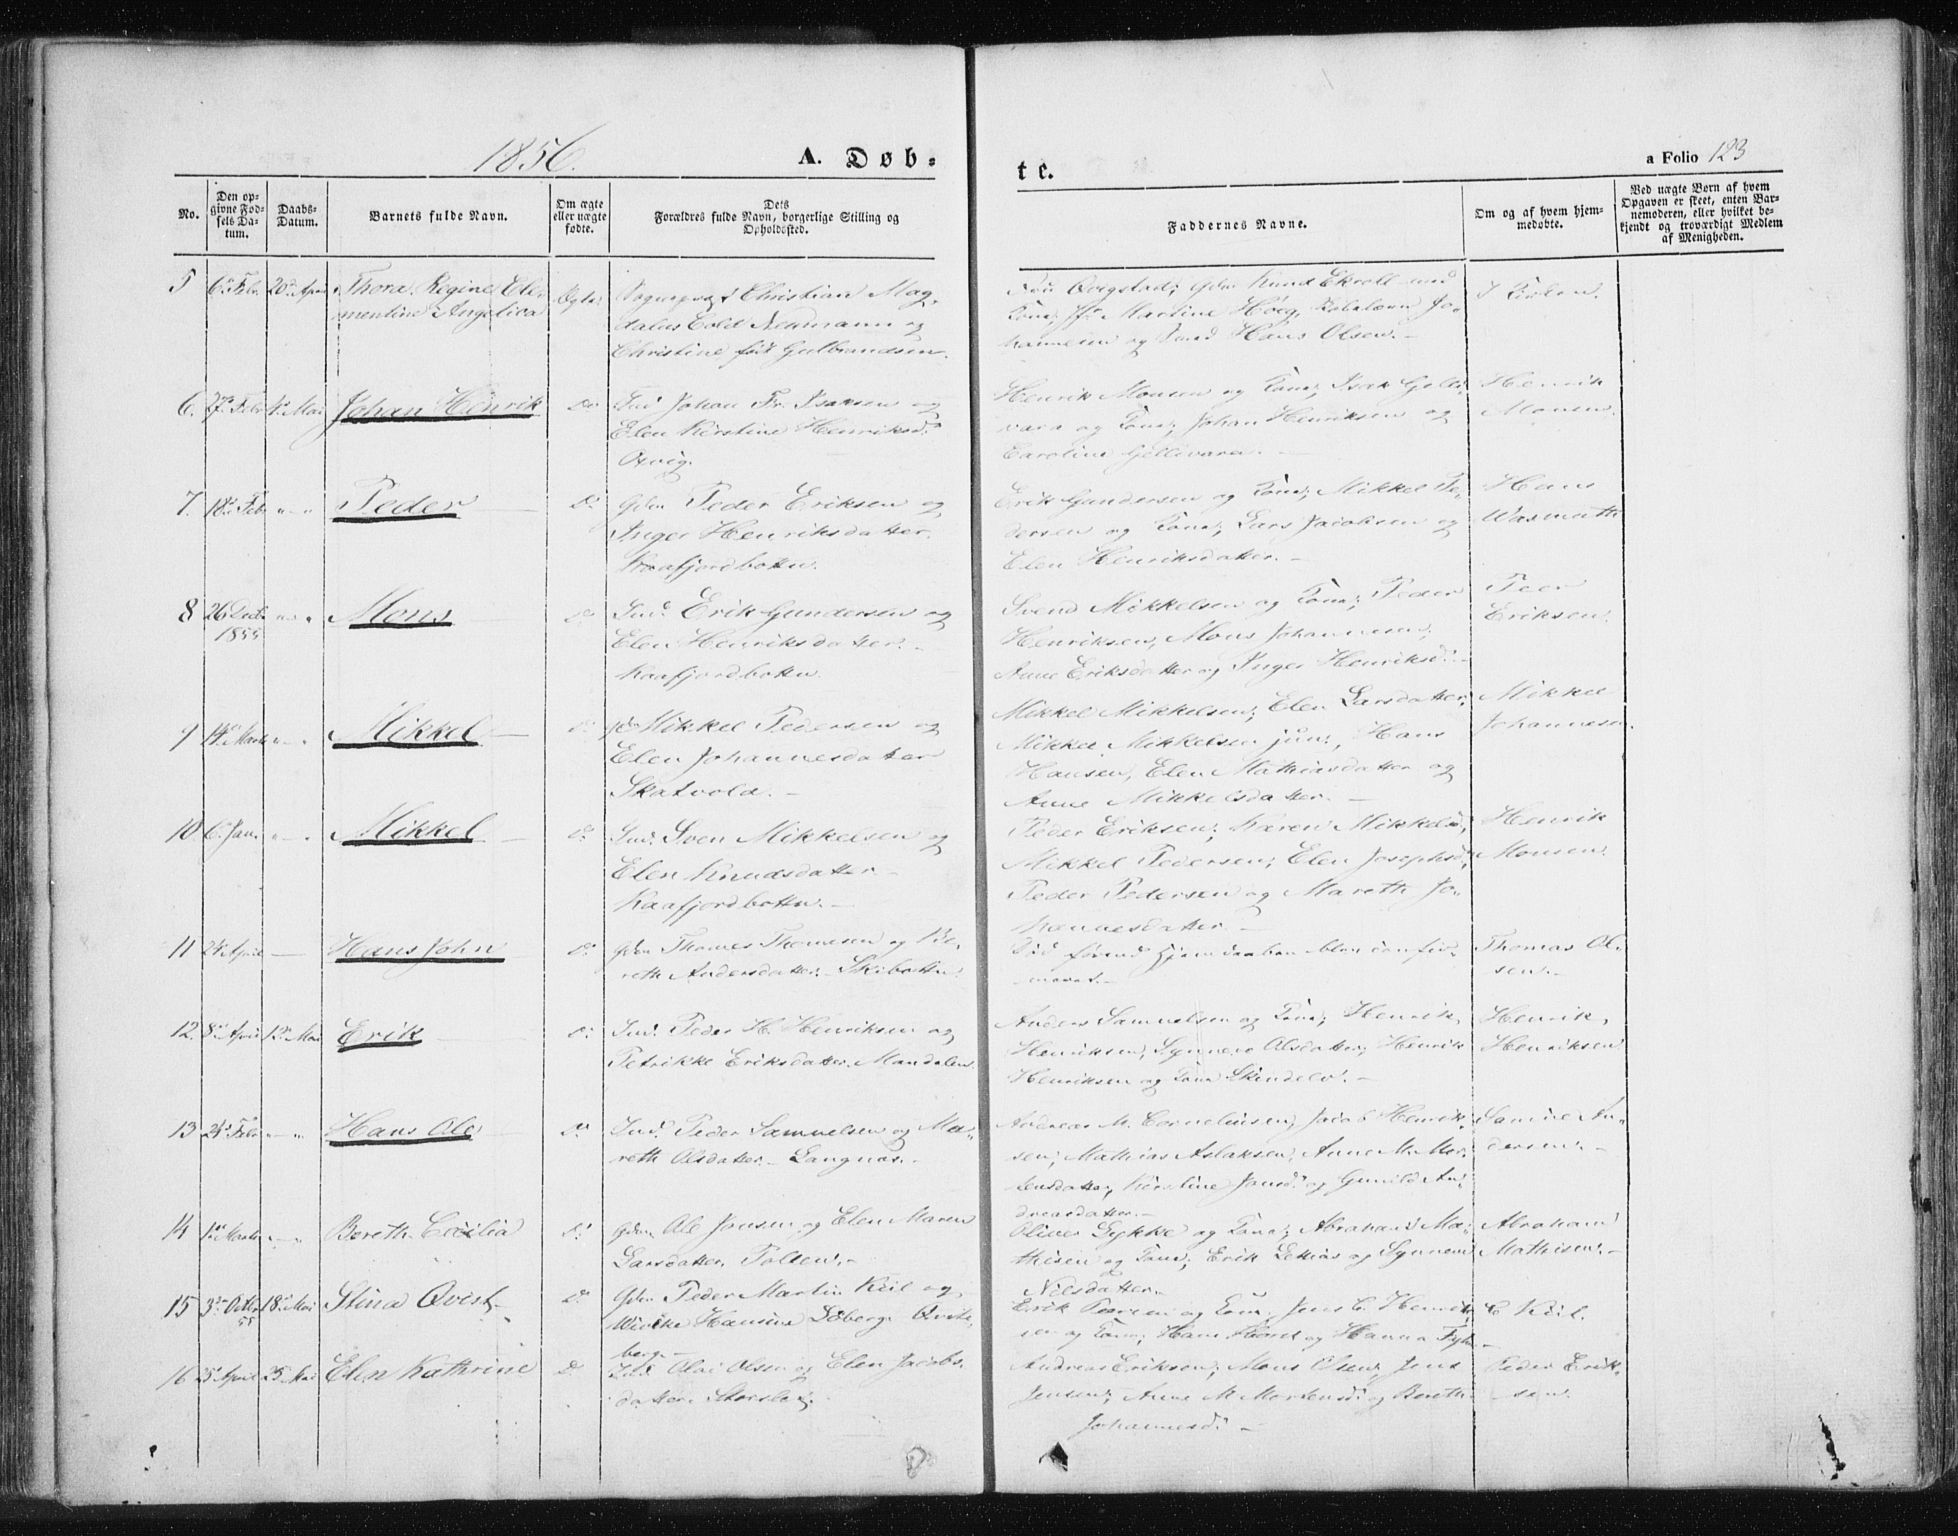 1856.
A. Døb-
te.
a Folio 123
No.
Den op-
givne Fød-
sels Da-
tum.
Daabs-
Datum.
Barnets fulde Navn.
Om ægte
eller uægte
fødte.
Dets
Forældres fulde Navn, borgerlige Stilling og
Opholdssted.
Faddernes Navne.
Om og af hvem hjem-
medøbte.
Ved uægte Børn af hvem
Opgaven er skeet, enten Bar-
nemoderen, eller hvilket be-
kjendt og troværdigt Medlem
af Menigheden.
5 6 Febr. 20 April Thora Regine Cle-
mentine Angelica
Ægte
Sognepræst Christian Mag-
dalus Cold Neumann og
Christine fød Gulbrandsen.
Qvigstad; Knud Ekroll med
Kone; Jfr Martine Höeg, Jo-
hannesen og Hans Olsen.
I Kirken.
6. 27 Febr 4 Mai Johan Henrik Do
Ind. Johan Fr. Isaksen og
Elen Kirstine Henriksd.
Henrik Monsen og Kone; Isak Gelli-
vara og Kone; Johan Henriksen og
Caroline Gellivara.
Henrik
Monsen.
7. 18 Feb " - " Peder Do
Gdm Peder Eriksen og
Inger Henriksdatter.
Kaafjordbotten.
Erik Gundersen og Kone; Mikkel Pe-
dersen og Kone; Lars Jacobsen og
Elen Henriksdatter. -
Hans
Wasmuth
8 26 Decb 1855 " - " Mons Do
Ind. Erik Gundersen og
Elen Henriksdatter. -
Kaafjordbotten.
Svend Mikkelsen og Kone; Peder
Henriksen, Mons Johannesen,
Anne Eriksdatter og Inger Henriksd. -
Peer
Eriksen.
9 14 Marts " - " Mikkel - Do
Mikkel Pedersen og
Elen Johannesdatter
Skatvold. -
Mikkel Mikkelsen; Elen Larsdatter;
Mikkel Mikkelsen jun:, Hans
Hansen, Elen Mathiasdatter og
Anne Mikkelsdatter. -
Mikkel
Johannesen.
10 6 Jan. " - " Mikkel - Do
Ind. Sven Mikkelsen og
Elen Knudsdatter. -
Kaafjordbotten. -
Peder Eriksen; Karen Mikkelsd.
Mikkel Pedersen; Elen Josephsd.
Peder Pedersen og Mareth Jo-
hannesdatter. -
Henrik
Monsen.
11 24 April - Hans John Do
Gdm Thomas Thomesen og Be-
reth Andersdatter. - Skibotten.
Død førend Hjemdaaben blev confir-
meret. -
Thomas Ol-
sen. -
12. 8 April 12 Mai Erik - Do
Ind. Peder H. Henriksen og
Petrikke Eriksdatter. Mandalen.
Anders Samuelsen og Kone; Henrik
Henriksen, Synnere Olsdatter; Henrik
Henriksen og Kone Skindelv. -
Henrik
Henriksen
13 24 Febr " - " Hans Ole Do
Ind. Peder Samuelsen og Ma-
reth Olsdatter. - Langnæs. -
Andreas M. Corneliusen, Jacob Henrik-
sen; Mathias Aslaksen, Anne M. Mor-
tensdatter, Kirstine Jonsd. og Gunild An-
dreasdatter. -
An-
dersen. -
14 1 Marts " - " Bereth Cecilia Do
Gdm Ole Jensen og Elen Maren
Larsdatter.
Oliver Gykke og Kone; Abraham Ma-
thisen og Kone; Erik og Synneve
Nilsdatter. -
Abraham
Mathisen. -
15 3 Octbr 55 18 Mai Stina Qvist - Do
Gdm Peder Martin Keil og
Hansine Qvite-
berg. -
Erik og Kone; Jens C. Henrik-
sen og Kone; Hans og Hanna
C Keil.
16 25 April 25 Mai Elen Kathrine Do
Ind. Olsen og Elen Jacobs-
datter.
Andreas Eriksen; Mons Olsen; Jens
Jensen; Anne M Mortensd. og Bereth
Johannesd. -
Peder Erik-
sen.